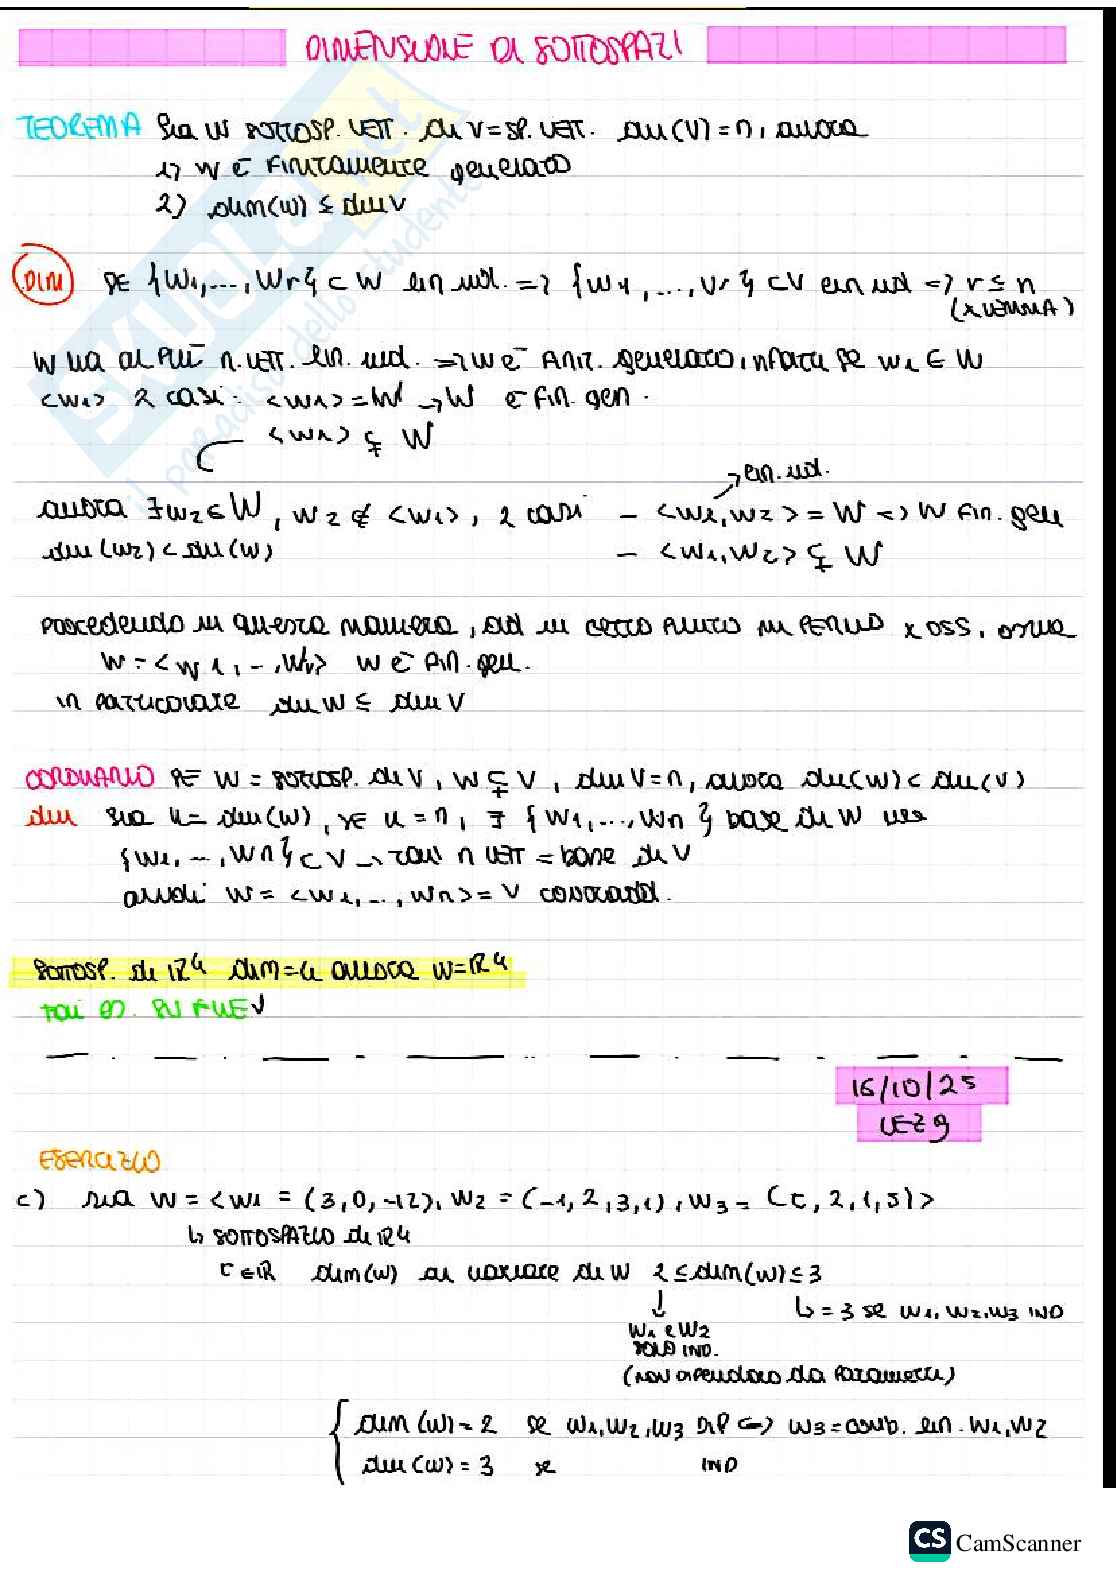 DIMENSIONE DI SOTTOSPAZI
TEOREMA Sia W SOTTOSP. VETT. di V = SP. VETT. dim(V) = n, allora
1) W È FINITAMENTE generato
2) dim(W) ≤ dim V
DIM SE {W1,..., Wr} ⊂ W lin ind. => {W1,..., Vr} ⊂ V lin ind => r ≤ n
(x LEMMA)
W ha al PIÙ n. VETT. lin. ind. => W è FINIT. generato, infatti se W1 ∈ W
<W1> 2 casi: <W1> = W → W è fin. gen.
<W1> ⊊ W
lin. ind.
allora ∃ W2 ∈ W, W2 ∉ <W1>, 2 casi - <W1, W2> = W => W fin. gen
dim (W2) < dim (W) - <W1, W2> ⊊ W
Procedendo in questa maniera, ad un certo punto mi fermo x oss.
W = <W1, -, Wr> W è fin. gen.
in particolare dim W ≤ dim V
COROLLARIO SE W = SOTTOSP. di V, W ⊊ V, dim V = n, allora dim(W) < dim(V)
dim sia k = dim(W), se k = n, ∃ {W1,..., Wn} base di W
{W1, -, Wn} ⊂ V → n VETT = base di V
quindi W = <W1,..., Wn> = V
SOTTOSP. di R4 dim=4 allora W=R4
16/10/25
LEZ 9
ESERCIZIO
c) sia W = <W1 = (3,0,-12), W2 = (-1,2,3,1), W3 = (c,2,1,5)>
↳ SOTTOSPAZIO di R4
c ∈ R dim(W) al variare di W 2 ≤ dim(W) ≤ 3
↓ ↳ = 3 se W1, W2, W3 IND
W1 e W2
SOLO IND.
(non dipendono da parametri)
dim (W) = 2 se W1, W2, W3 DIP <=> W3 = comb. lin. W1, W2
dim (W) = 3 se IND
SKUOLA.net
il paradiso dello studente
CS CamScanner